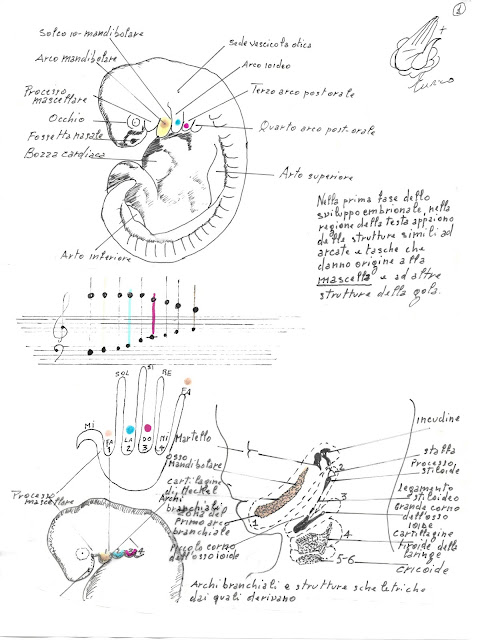 1
Solco io-mandibolare
Sede vescicola otica
Arco mandibolare
Arco ioideo
Processo
mascellare
Terzo arco postorale
Occhio
Quarto arco postorale
Fossetta nasale
Bozza cardiaca
Arto superiore
Arto inferiore
Nella prima fase dello
sviluppo embrionale, nella
regione della testa appaiono
delle strutture simili ad
arcate e tasche che
danno origine alla
mascella e ad altre
strutture della gola.
SOL
SI
RE
FA
MI
FA
LA
DO
MI
1
2
3
4
Processo
mascellare
Martello
osso
Mandibolare
cartilagine
di Meckel
Archi
branchiali
zona del
Primo arco
branchiale
Piccolo corno
dell'osso ioide
incudine
staffa
Processo
stiloide
legamento
stiloideo
Grande corno
dell'osso
ioide
cartilagine
tiroide della
laringe
cricoide
1
2
3
4
5-6
Archi branchiali e strutture scheletriche
dai quali derivano